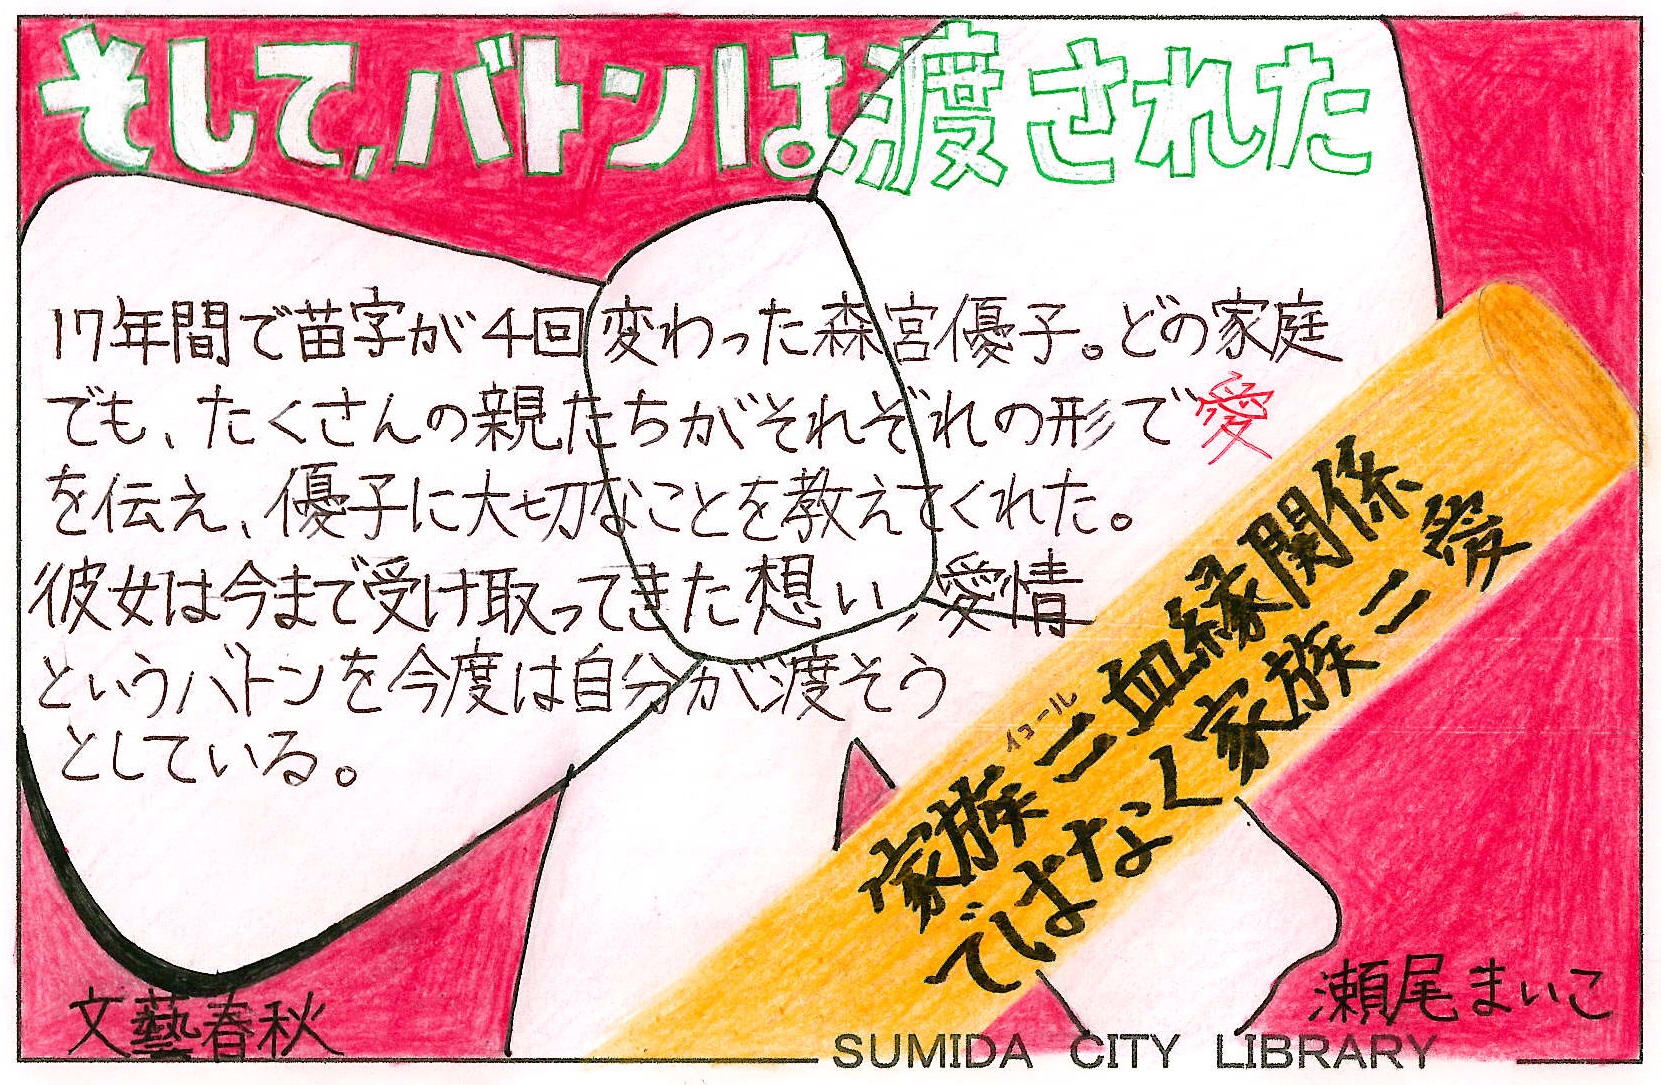 そして,バトンは渡された
17年間で苗字が4回変わった森宮優子。どの家庭
でも、たくさんの親たちがそれぞれの形で愛
を伝え、優子に大切なことを教えてくれた。
彼女は今まで受け取ってきた想い、愛情
というバトンを今度は自分が渡そう
としている。
イコール
家族=血縁関係
ではなく家族=愛
文藝春秋
瀬尾まいこ
SUMIDA CITY LIBRARY